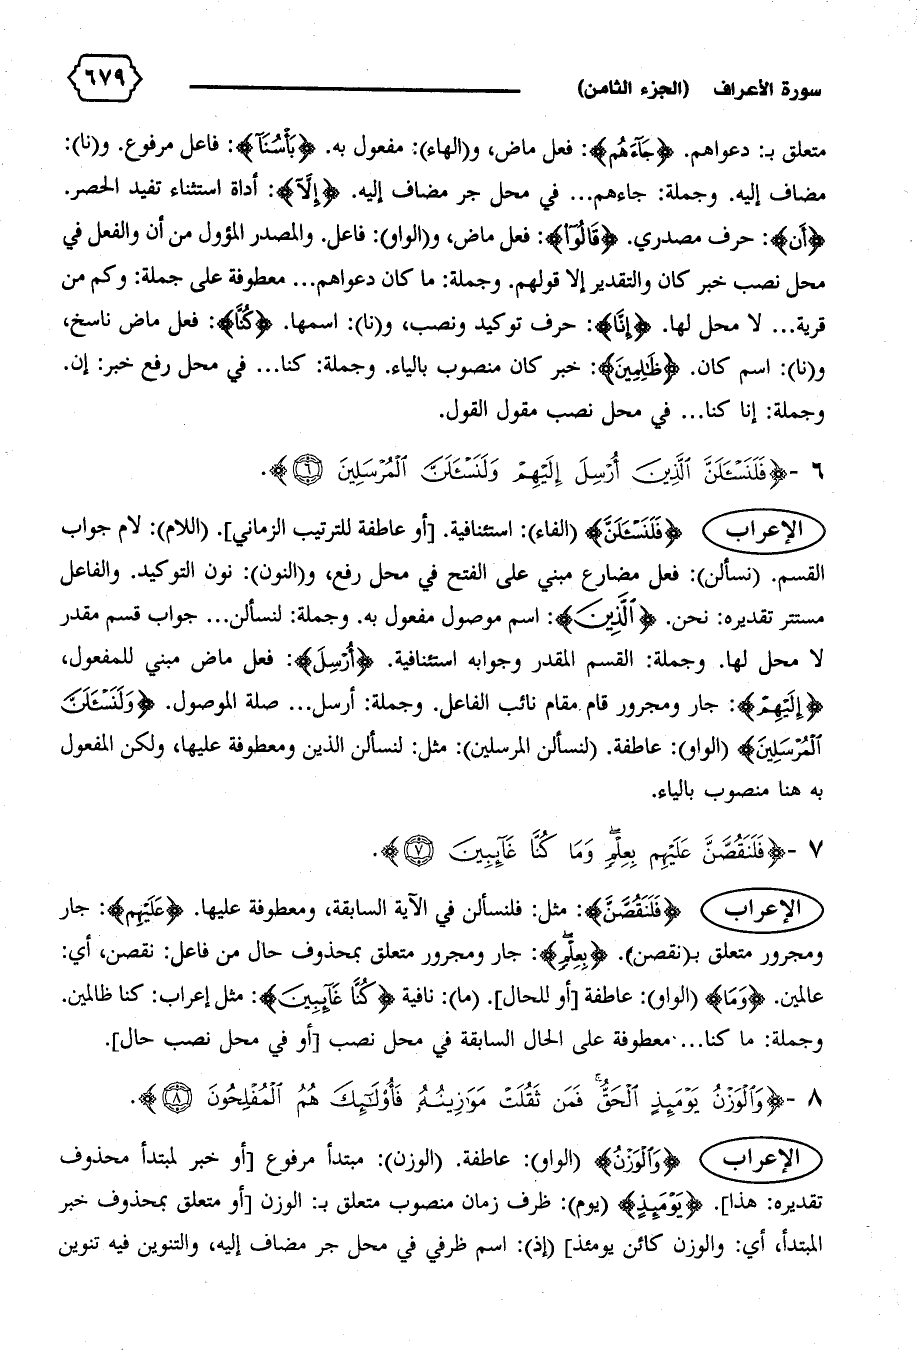 سورة الأعراف (الجزء الثامن) ٦٧٩
متعلق بـ: دعواهم. ﴿جَآءَهُم﴾: فعل ماض، و(الهاء): مفعول به. ﴿بَأْسُنَآ﴾: فاعل مرفوع. و(نا):
مضاف إليه. وجملة: جاءهم... في محل جر مضاف إليه. ﴿إِلَّآ﴾: أداة استثناء تفيد الحصر.
﴿أَن﴾: حرف مصدري. ﴿قَالُوٓا۟﴾: فعل ماض، و(الواو): فاعل. والمصدر المؤول من أن والفعل في
محل نصب خبر كان والتقدير إلا قولهم. وجملة: ما كان دعواهم... معطوفة على جملة: وكم من
قرية... لا محل لها. ﴿إِنَّا﴾: حرف توكيد ونصب، و(نا): اسمها. ﴿كُنَّا﴾: فعل ماض ناسخ،
و(نا): اسم كان. ﴿ظَٰلِمِينَ﴾: خبر كان منصوب بالياء. وجملة: كنا... في محل رفع خبر: إن.
وجملة: إنا كنا... في محل نصب مقول القول.
٦ - ﴿فَلَنَسْـَٔلَنَّ ٱلَّذِينَ أُرْسِلَ إِلَيْهِمْ وَلَنَسْـَٔلَنَّ ٱلْمُرْسَلِينَ ٦﴾.
الإعراب ﴿فَلَنَسْـَٔلَنَّ﴾ (الفاء): استئنافية. [أو عاطفة للترتيب الزماني]. (اللام): لام جواب
القسم. (نسألن): فعل مضارع مبني على الفتح في محل رفع، و(النون): نون التوكيد. والفاعل
مستتر تقديره: نحن. ﴿ٱلَّذِينَ﴾: اسم موصول مفعول به. وجملة: لنسألن... جواب قسم مقدر
لا محل لها. وجملة: القسم المقدر وجوابه استئنافية. ﴿أُرْسِلَ﴾: فعل ماض مبني للمفعول،
﴿إِلَيْهِمْ﴾: جار ومجرور قام مقام نائب الفاعل. وجملة: أرسل... صلة الموصول. ﴿وَلَنَسْـَٔلَنَّ
ٱلْمُرْسَلِينَ﴾ (الواو): عاطفة. (لنسألن المرسلين): مثل: لنسألن الذين ومعطوفة عليها، ولكن المفعول
به هنا منصوب بالياء.
٧ - ﴿فَلَنَقُصَّنَّ عَلَيْهِم بِعِلْمٍ ۖ وَمَا كُنَّا غَآئِبِينَ ٧﴾.
الإعراب ﴿فَلَنَقُصَّنَّ﴾: مثل: فلنسألن في الآية السابقة، ومعطوفة عليها. ﴿عَلَيْهِم﴾: جار
ومجرور متعلق بـ(نقصن). ﴿بِعِلْمٍ ۖ﴾: جار ومجرور متعلق بمحذوف حال من فاعل: نقصن، أي:
عالمين. ﴿وَمَا﴾ (الواو): عاطفة [أو للحال]. (ما): نافية ﴿كُنَّا غَآئِبِينَ﴾: مثل إعراب: كنا ظالمين.
وجملة: ما كنا... معطوفة على الحال السابقة في محل نصب [أو في محل نصب حال].
٨ - ﴿وَٱلْوَزْنُ يَوْمَئِذٍ ٱلْحَقُّ ۚ فَمَن ثَقُلَتْ مَوَٰزِينُهُۥ فَأُو۟لَٰٓئِكَ هُمُ ٱلْمُفْلِحُونَ ٨﴾.
الإعراب ﴿وَٱلْوَزْنُ﴾ (الواو): عاطفة. (الوزن): مبتدأ مرفوع [أو خبر لمبتدأ محذوف
تقديره: هذا]. ﴿يَوْمَئِذٍ﴾ (يوم): ظرف زمان منصوب متعلق بـ: الوزن [أو متعلق بمحذوف خبر
المبتدأ، أي: والوزن كائن يومئذ] (إذ): اسم ظرفي في محل جر مضاف إليه، والتنوين فيه تنوين